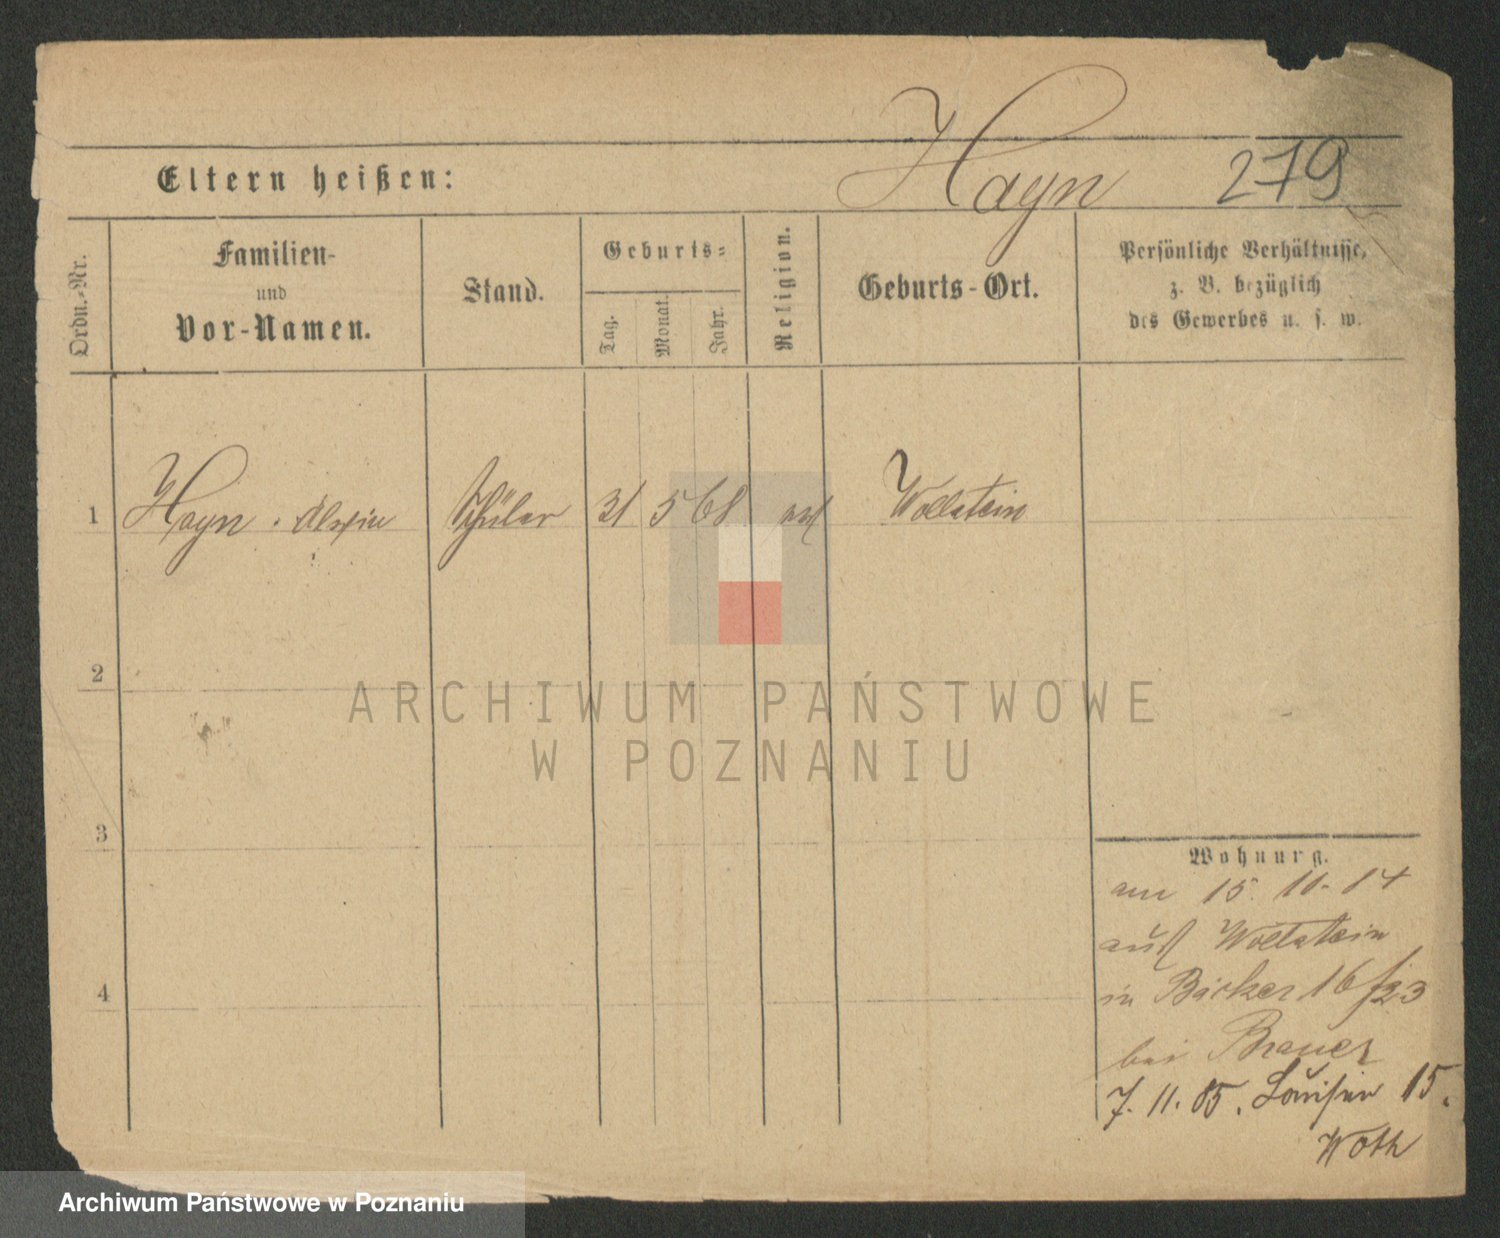 Hayn 279
Eltern heißen:
Ordn.-Nr.
Familien-
und
Vor-Namen.
Stand.
Geburts-
Tag.
Monat.
Jahr.
Religion.
Geburts-Ort.
Persönliche Verhältnisse,
z. B. bezüglich
des Gewerbes u. s. w.
1 Hayn Schüler 31 5 68 Wollstein
2
ARCHIWUM PAŃSTWOWE
W POZNANIU
3
4
Wohnung.
am 15. 11. 84
aus Wollstein
in Bäcker 16
bei Brauer
7. 11. 85. Louisen 15.
Woth
Archiwum Państwowe w Poznaniu